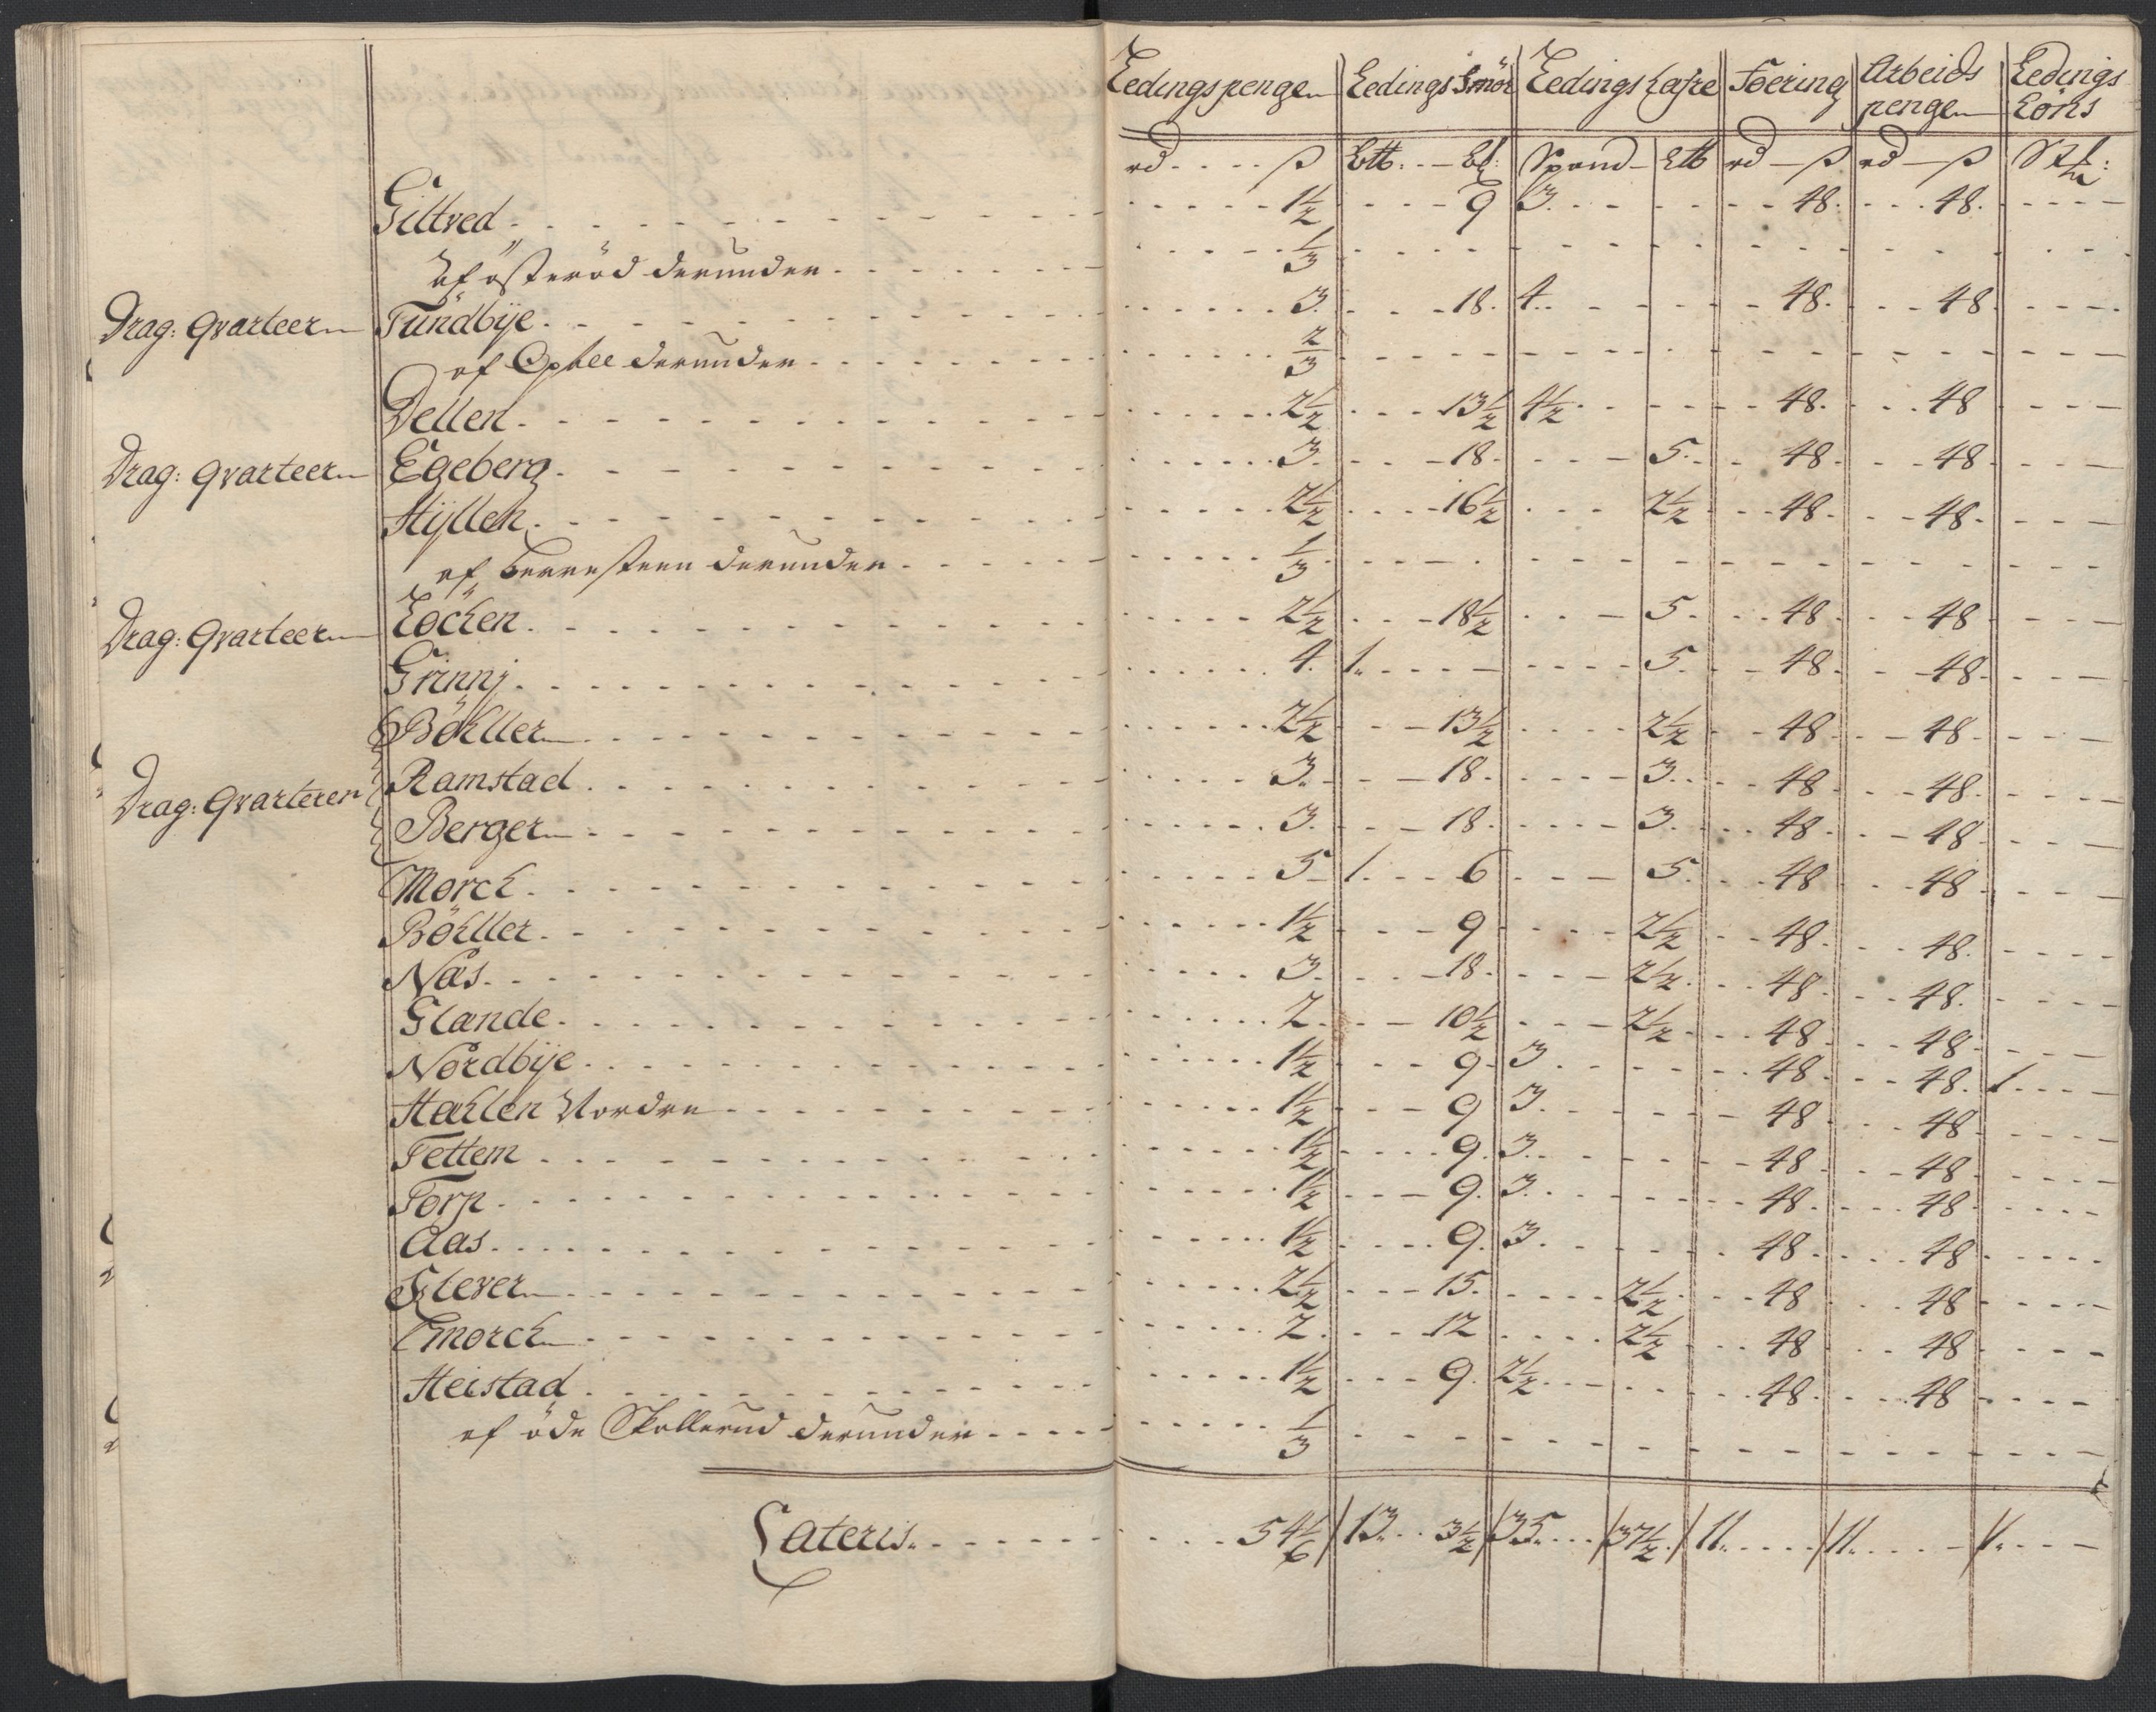 Ledingspengen Ledings Smör Ledings Hafre Foering Arbeids pengen Ledings Höns
rd ß Ltt: Ct: Spand Ltt rd ß rd ß Stk:
Giltved 1½ 9 3 48 48
af österöd derunder ⅓
Drag: Qvarteer Tundbÿe 3 18 4 48 48
af Ophee derunder ⅔
Dellen 2½ 13½ 4½ 48 48
Drag: Qvarteer Egeberg 3 18 5 48 48
Hÿllen 2½ 16½ 2½ 48 48
af derunder ⅓
Drag: Qvarteer Löchen 2½ 18½ 5 48 48
Grinnj 4 1 5 48 48
Böhller 2½ 13½ 2½ 48 48
Drag: Qvarteren Ramstad 3 18 3 48 48
Berger 3 18 3 48 48
Morch 5 1 6 5 48 48
Böhller 1½ 9 2½ 48 48
Næs 3 18 2½ 48 48
Glande 2 10½ 2½ 48 48
Nordbÿe 1½ 9 3 48 48 1
Hahlen Nordre 1½ 9 3 48 48
Tettem 1½ 9 3 48 48
Torp 1½ 9 3 48 48
Aas 1½ 9 3 48 48
Klever 2½ 15 2½ 48 48
Morch 2 12 2½ 48 48
Heistad 1½ 9 2½ 48 48
af öde Skollerud derunder ⅓
Lateris 54⅙ 13 3½ 35 37½ 11 11 1